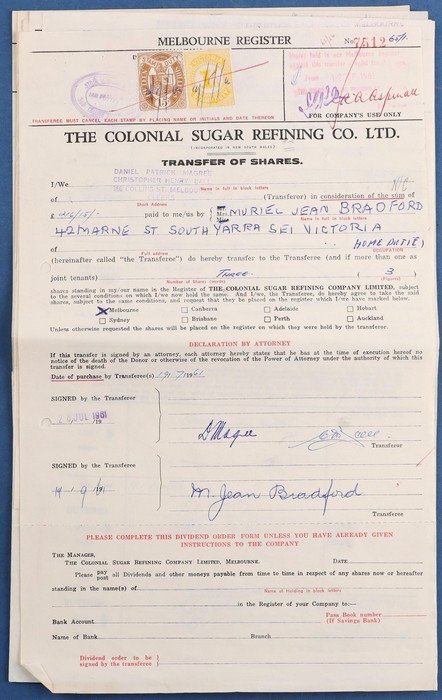 MELBOURNE REGISTER
No. 7512
TRANSFEREE MUST CANCEL EACH STAMP BY PLACING NAME OR INITIALS AND DATE THEREON
FOR COMPANY'S USE ONLY
THE COLONIAL SUGAR REFINING CO. LTD.
(INCORPORATED IN NEW SOUTH WALES)
TRANSFER OF SHARES.
DANIEL PATRICK MAGREE
CHRISTOPHER HENRY
I/We
COLLINS ST. MELBOURNE
Name in full in block letters
of (Transferor) in consideration of the sum of
Full Address
£ paid to me/us by MURIEL JEAN BRADFORD
Name in full in block letters
42 MARNE ST SOUTH YARRA SE1 VICTORIA
of HOME DUTIES
Full address OCCUPATION
(hereinafter called "the Transferee") do hereby transfer to the Transferee (and if more than one as
joint tenants) THREE. ( 3 )
Number of Shares (words) (Figures)
shares standing in my/our name in the Register of THE COLONIAL SUGAR REFINING COMPANY LIMITED, subject
to the several conditions on which I/we now hold the same. And I/we, the Transferee, do hereby agree to take the said
shares, subject to the same conditions, and request that they be placed on the register which I/we have marked below.
Melbourne Canberra Adelaide Hobart
Sydney Brisbane Perth Auckland
Unless otherwise requested the shares will be placed on the register on which they were held by the transferor.
DECLARATION BY ATTORNEY
If this transfer is signed by an attorney, each attorney hereby states that he has at the time of execution hereof no
notice of the death of the Donor or otherwise of the revocation of the Power of Attorney under the authority of which this
transfer is signed.
Date of purchase by Transferee(s) 19/7/1961
SIGNED by the Transferor
JUL 1961
D Magee
Transferor
SIGNED by the Transferee
M. Jean Bradford
Transferee
PLEASE COMPLETE THIS DIVIDEND ORDER FORM UNLESS YOU HAVE ALREADY GIVEN
INSTRUCTIONS TO THE COMPANY
THE MANAGER,
THE COLONIAL SUGAR REFINING COMPANY LIMITED, MELBOURNE. DATE
Please pay/post all Dividends and other moneys payable from time to time in respect of any shares now or hereafter
standing in the name(s) of
Name of Holding in block letters
in the Register of your Company to:—
Bank Account Pass Book number
(If Savings Bank)
Name of Bank Branch
Dividend order to be
signed by the transferee